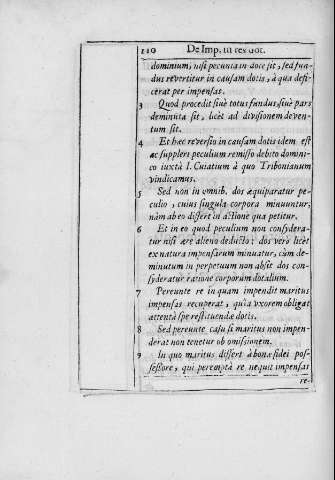 110 De Imp. in res dot.
dominium, nisi pecunia in dote sit, sed fun-
dus revertitur in causam dotis, à qua defi-
cerat per impensas.
3 Quod procedit siuè totus fundus siuè pars
deminuta sit, licèt ad divisionem deven-
tum sit.
4 Et hæc reversio in causam dotis idem est
ac suppleri peculium remisso debito domini-
co iuxtà I. Cuiatium à quo Tribonianum
vindicamus.
5 Sed non in omnib. dos æquiparatur pe-
culio, cuius singula corpora minuuntur,
nàm ab eo differt in actione qua petitur.
6 Et in eo quod peculium non consydera-
tur nisi ære alieno deducto: dos verò licèt
ex natura impensarum minuatur, cùm de-
minutum in perpetuum non absit dos con-
syderatur ratione corporum dotalium.
7 Pereunte re in quam impendit maritus
impensas recuperat, quia vxorem obligat
attentà spe restituendæ dotis.
8 Sed pereunte casu si maritus non impen-
derat non tenetur ob omissionem.
9 In quo maritus differt à bonæ fidei pos-
sessore, qui peremptâ re nequit impensas
re-